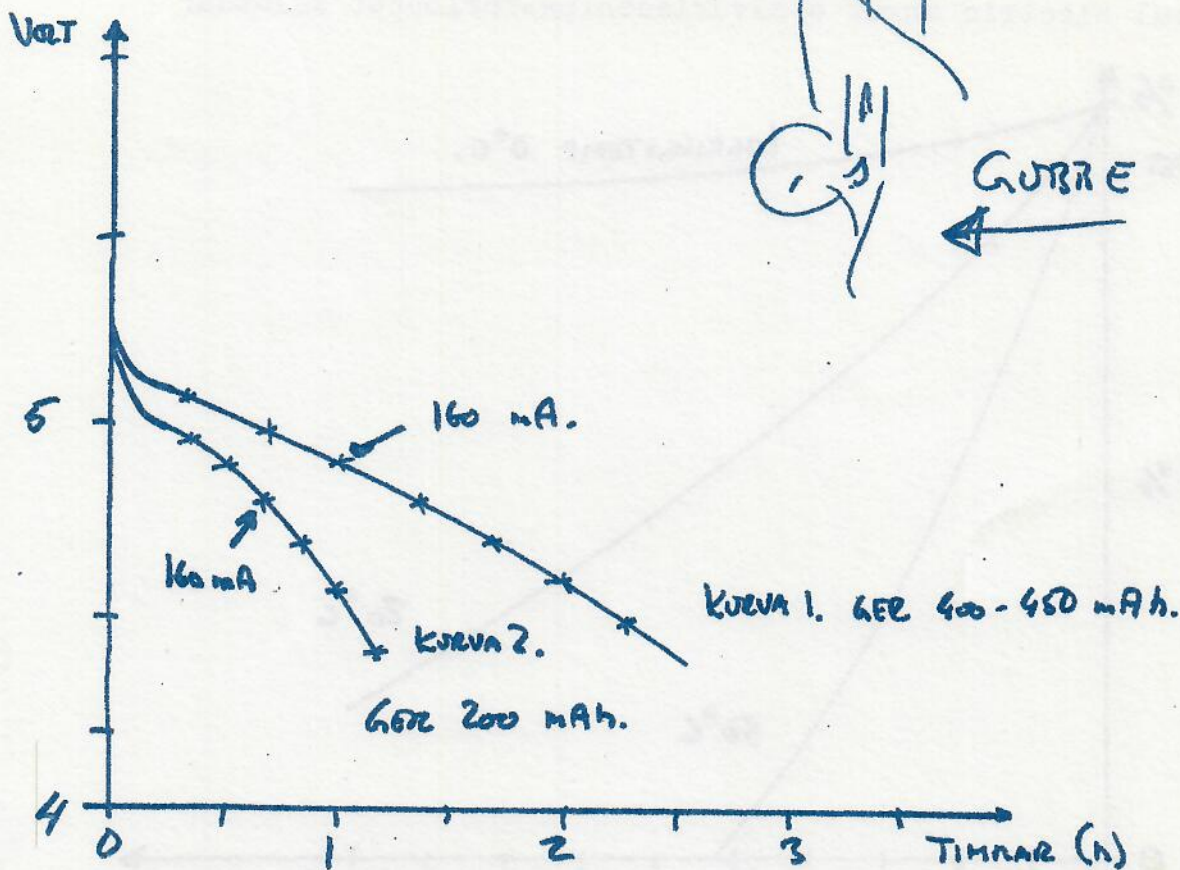 VOLT
GUBBE
5
160 mA.
160 mA
KURVA 1. GER 400-450 mAh.
KURVA 2.
GER 200 mAh.
4
0 1 2 3 TIMMAR (h)